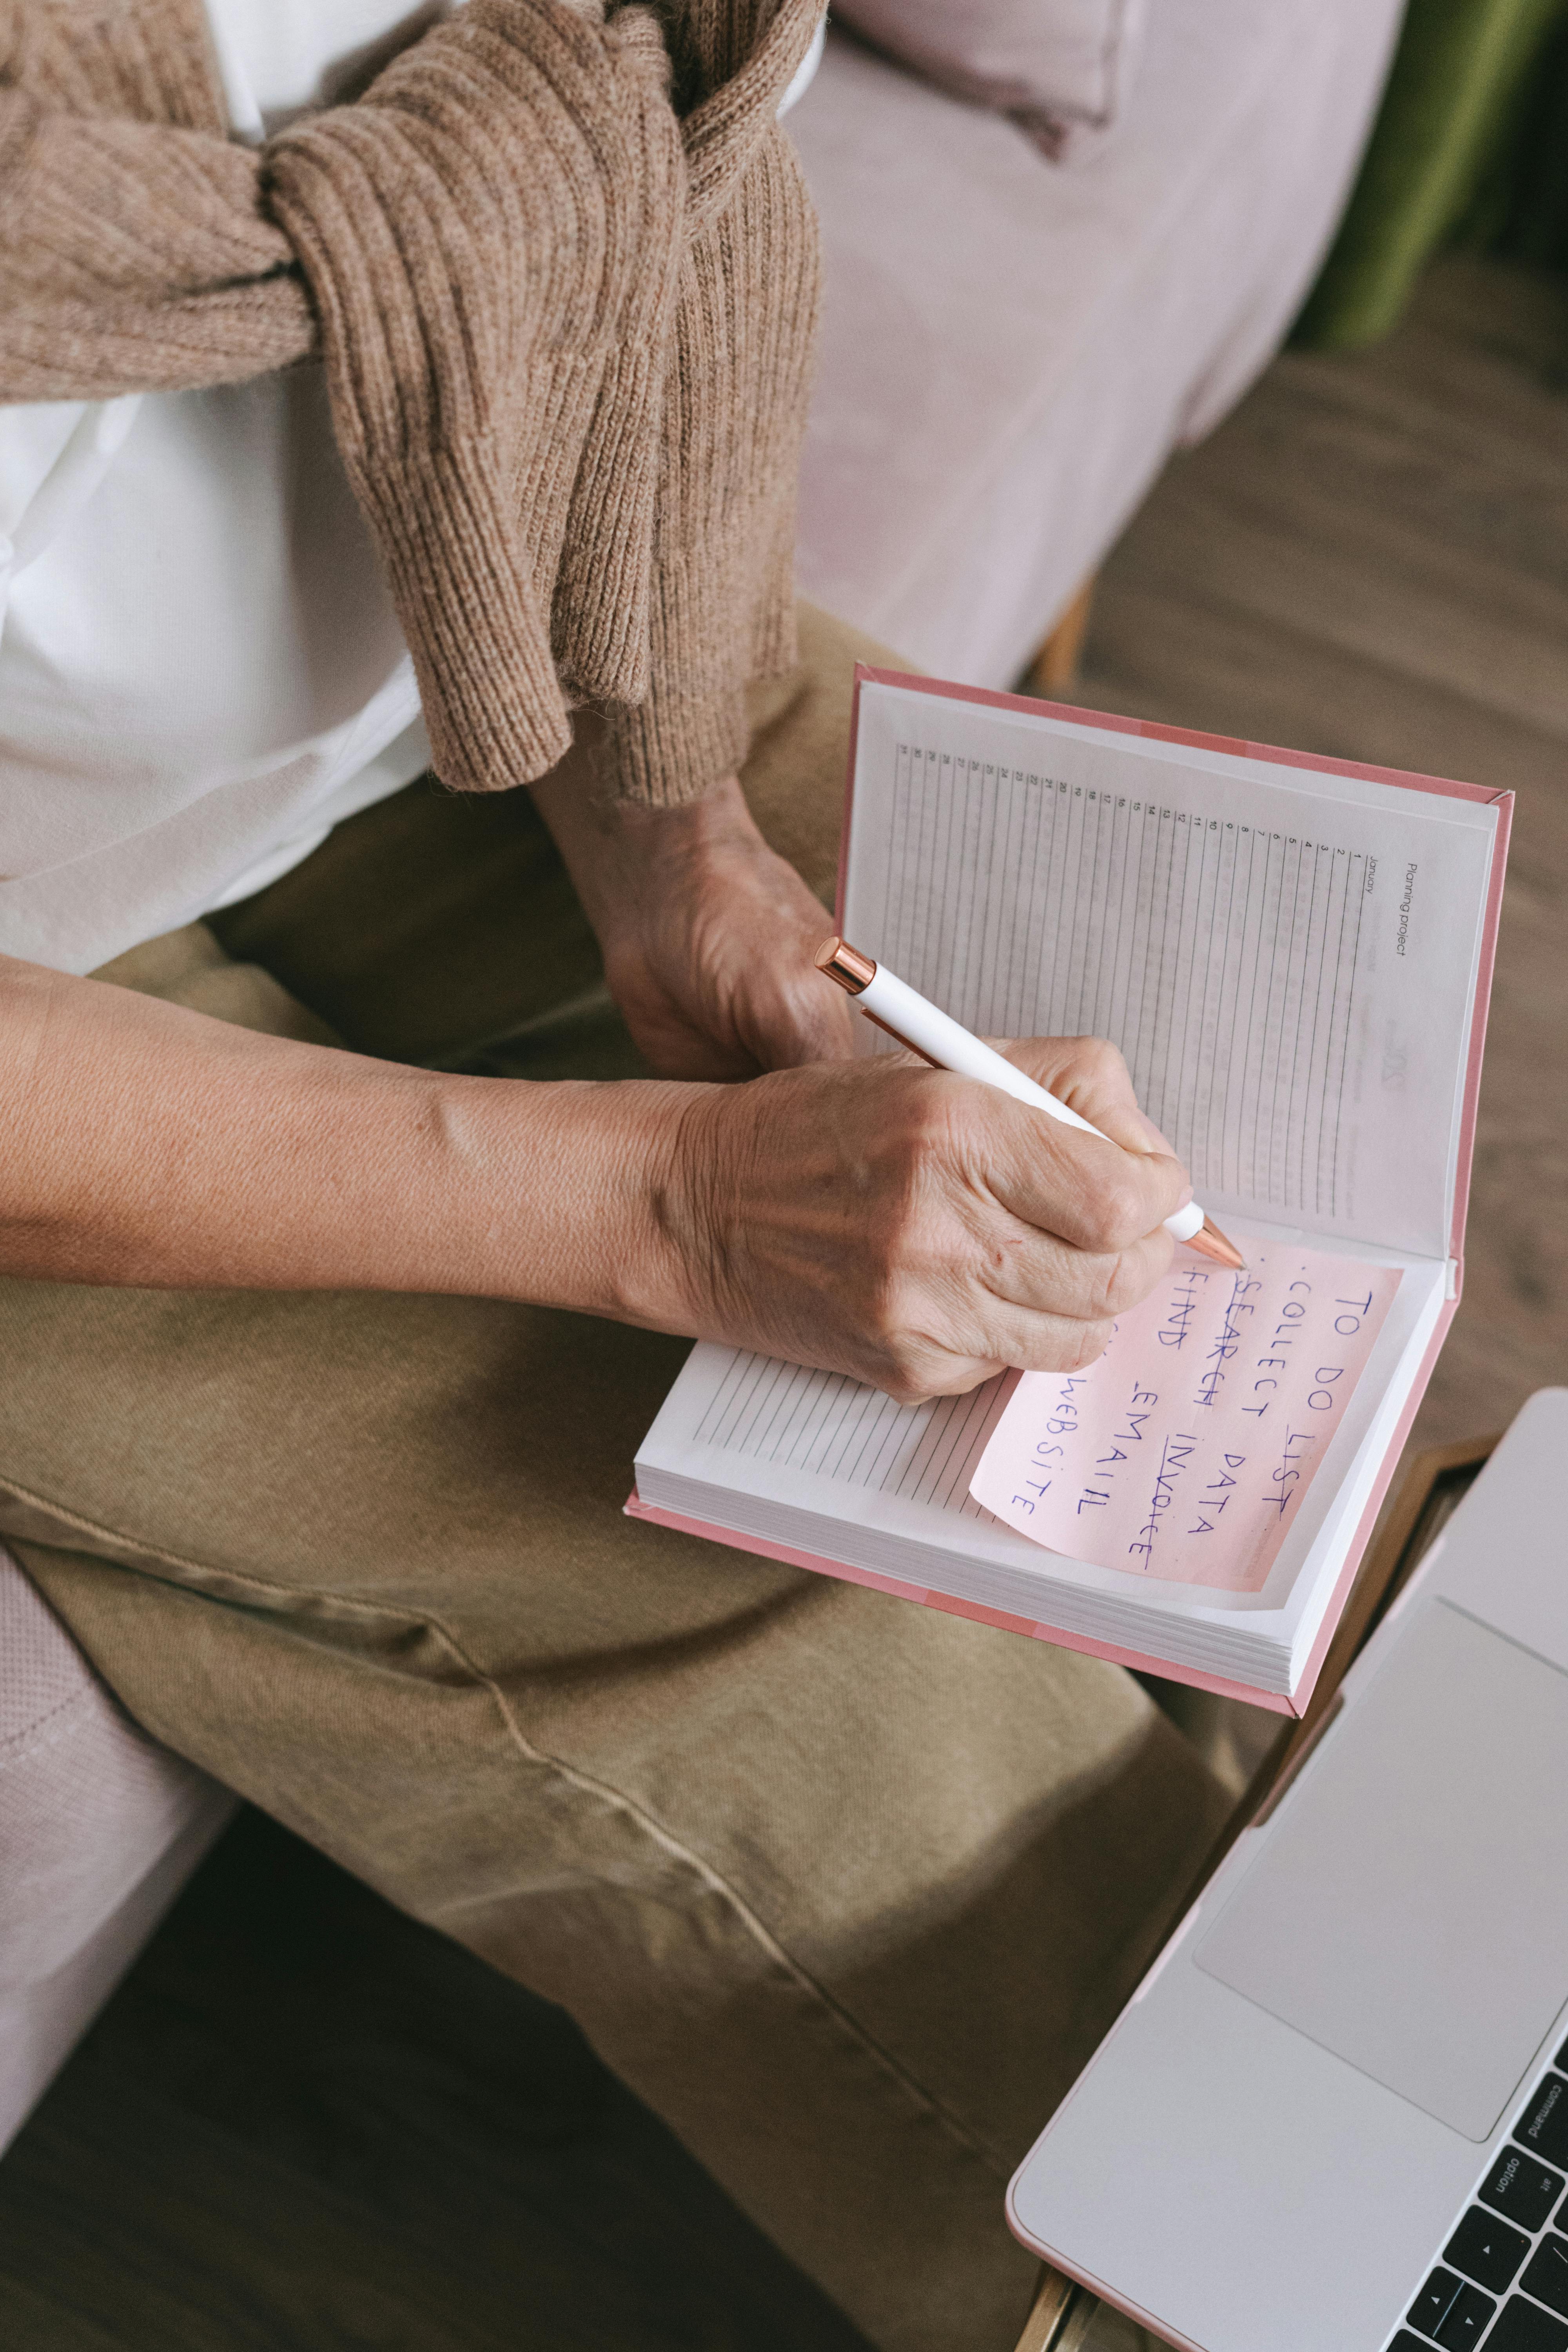 Planning project
January
1
2
3
4
5
6
7
8
9
10
11
12
13
14
15
16
17
18
19
20
21
22
23
24
25
26
27
28
29
30
31
TO DO LIST
· COLLECT DATA
· SEARCH INVOICE
FIND EMAIL
WEBSITE
command
option
alt